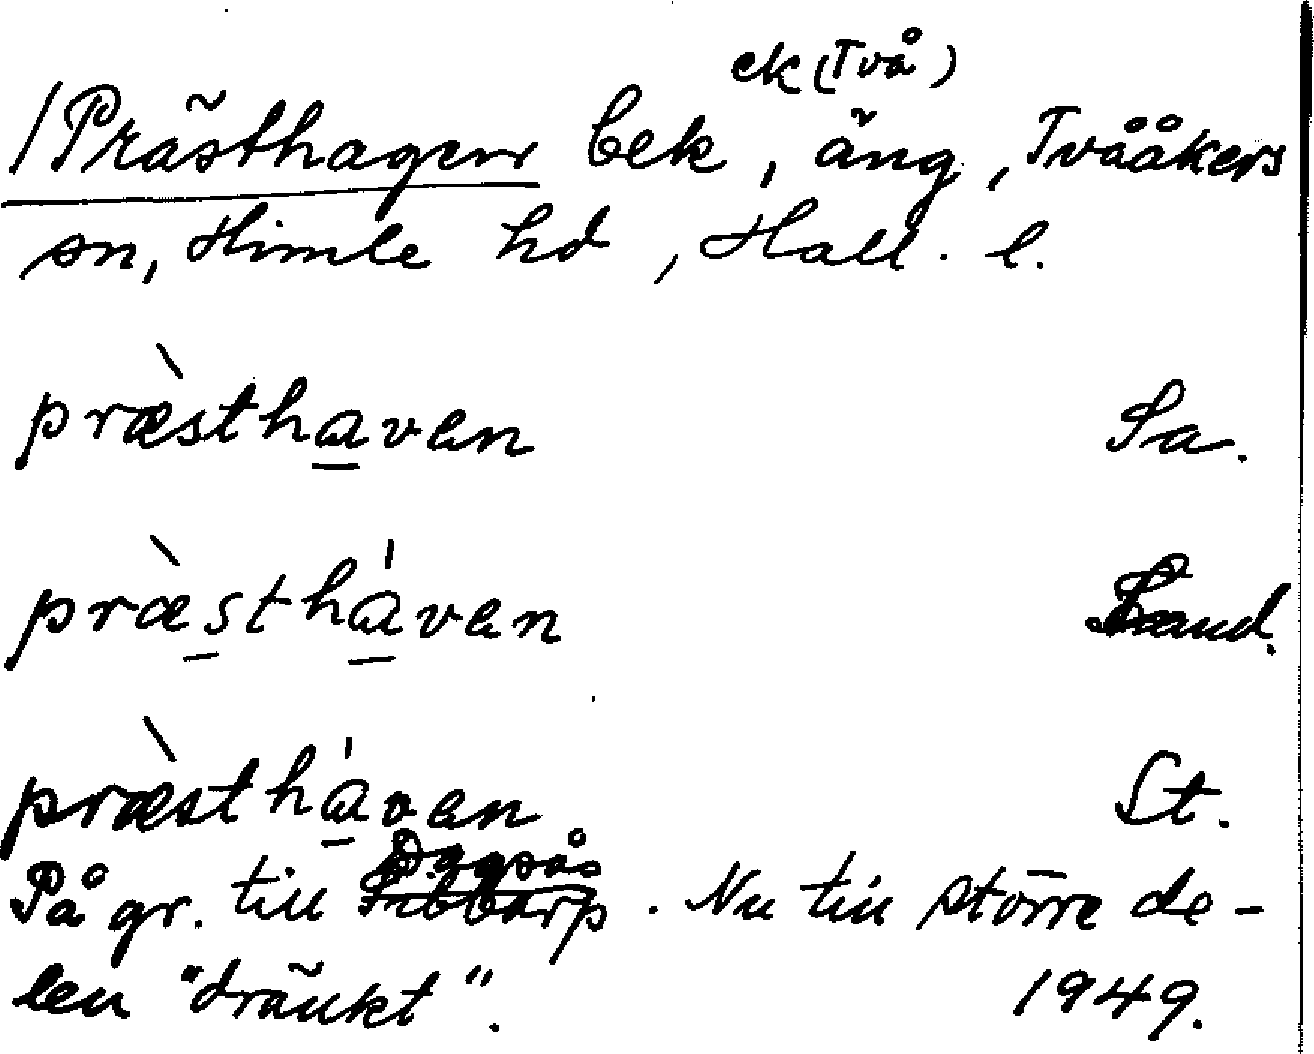 ek (Två)
/Prästhagen bek, äng, Tvååkers
sn, Himle hd, Hall. l.
præ̀sthaven Sa.
præ̀stháven Sand.
præ̀stháven St.
På gr. till Daggsås. Nu till större de-
len "dränkt". 1949.